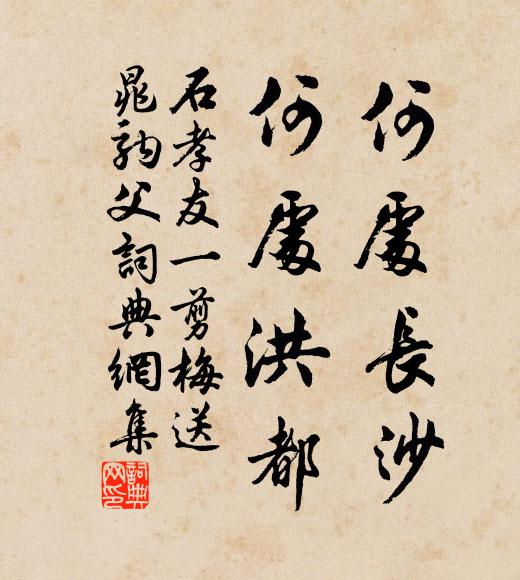 何處長沙
何處洪都
石孝友一剪梅送
晁駒父詞典網集
詞典网印